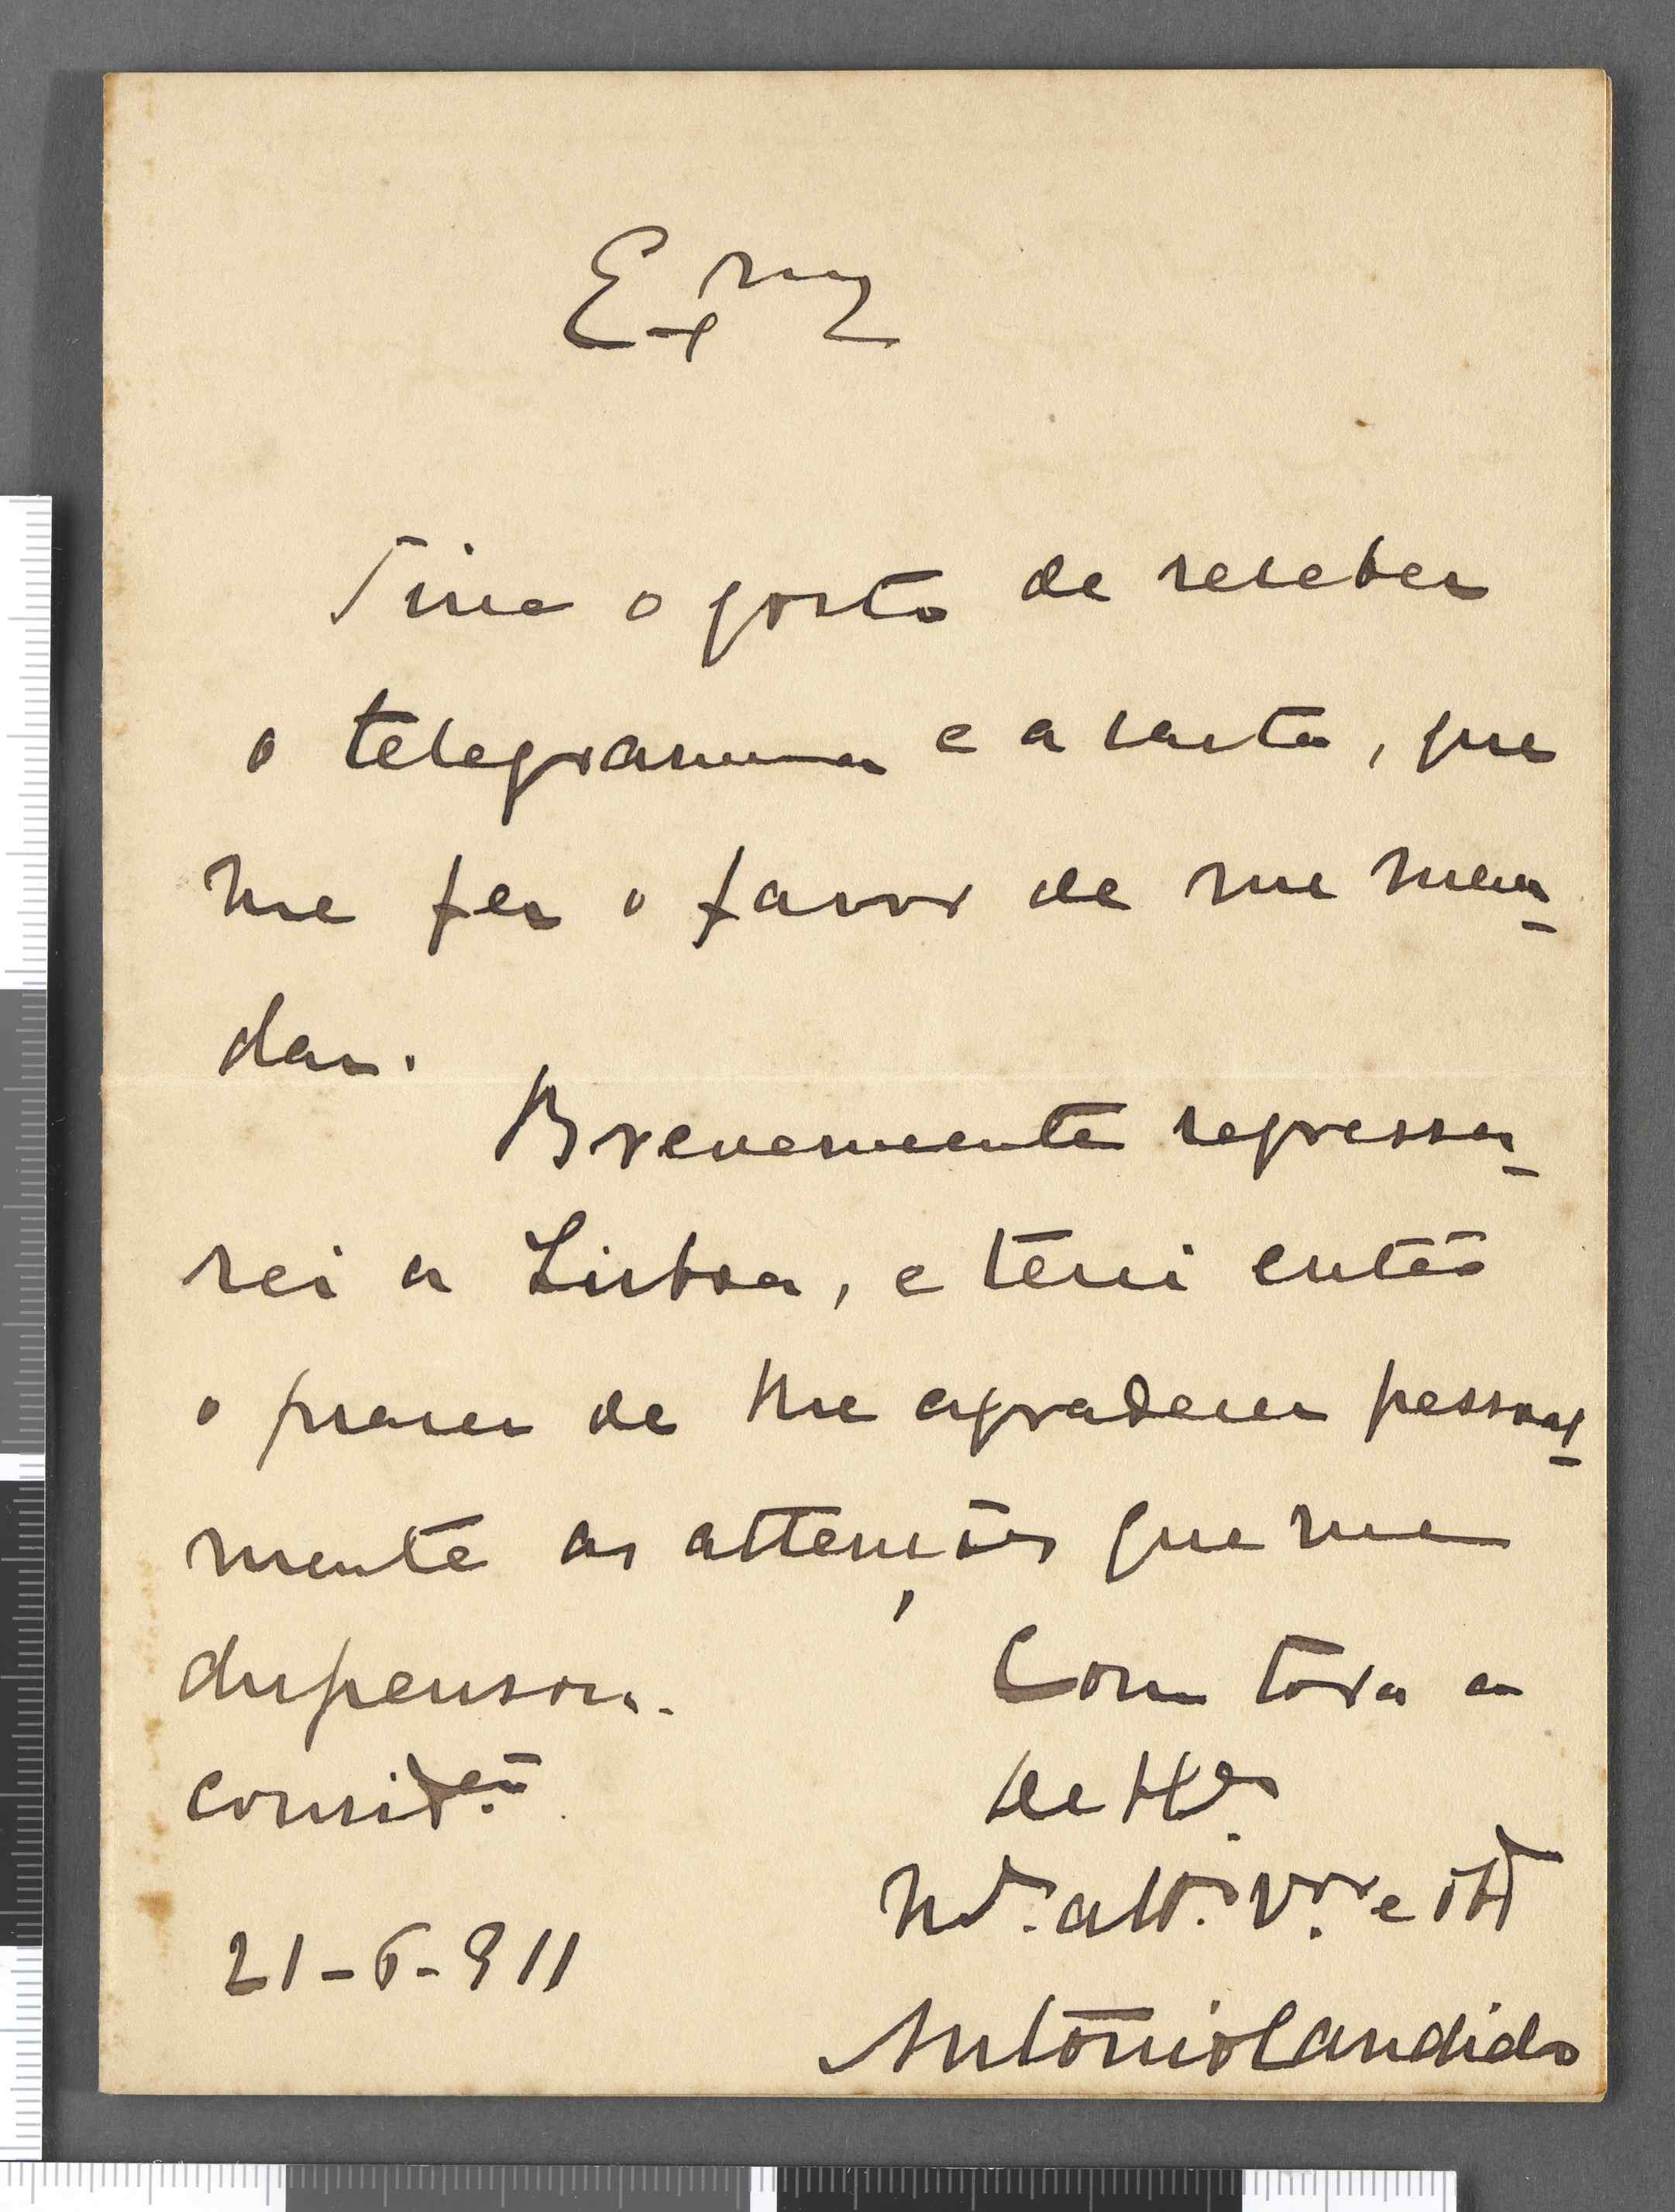 Exmo
Tive o gosto de receber
o telegramma e a carta, que
me fez o favor de me man-
dar.
Brevemente regressa-
rei a Lisboa, e terei então
o prazer de lhe agradecer pessoal-
mente as attenções que me
dispensou. Com toda a
consid.ão de V. Ex.a
m.to att.o V.or e
21-6-911
Antonio Candido